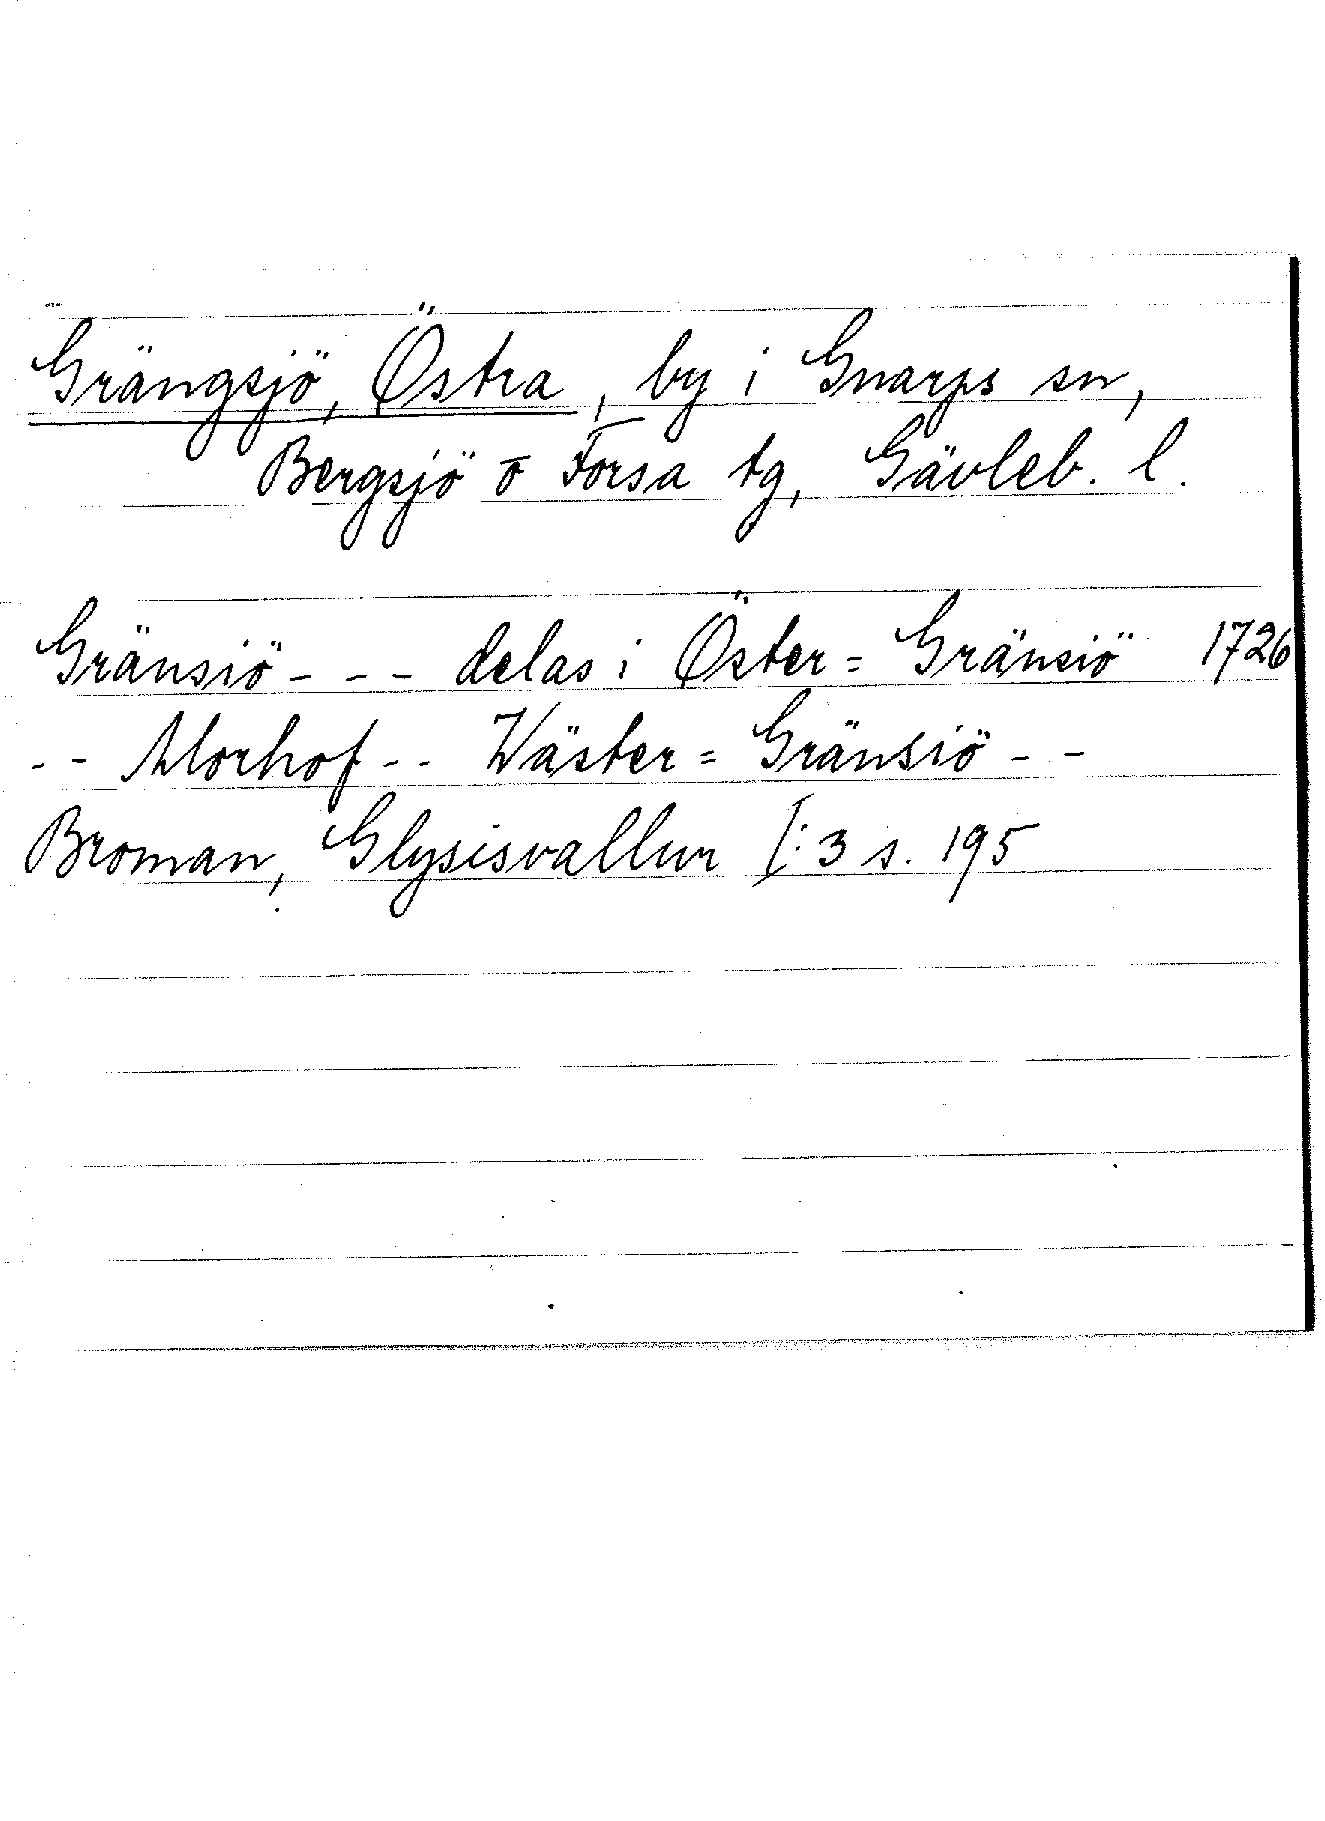 Grängsjö, Östra, by i Gnarps sn,
Bergsjö o Forsa tg, Gävleb. l.
Gränsiö - - - delas i Öster = Gränsiö 1726
- - Morhof - - Wäster = Gränsiö - -
Broman, Glysisvallur I:3 s. 195